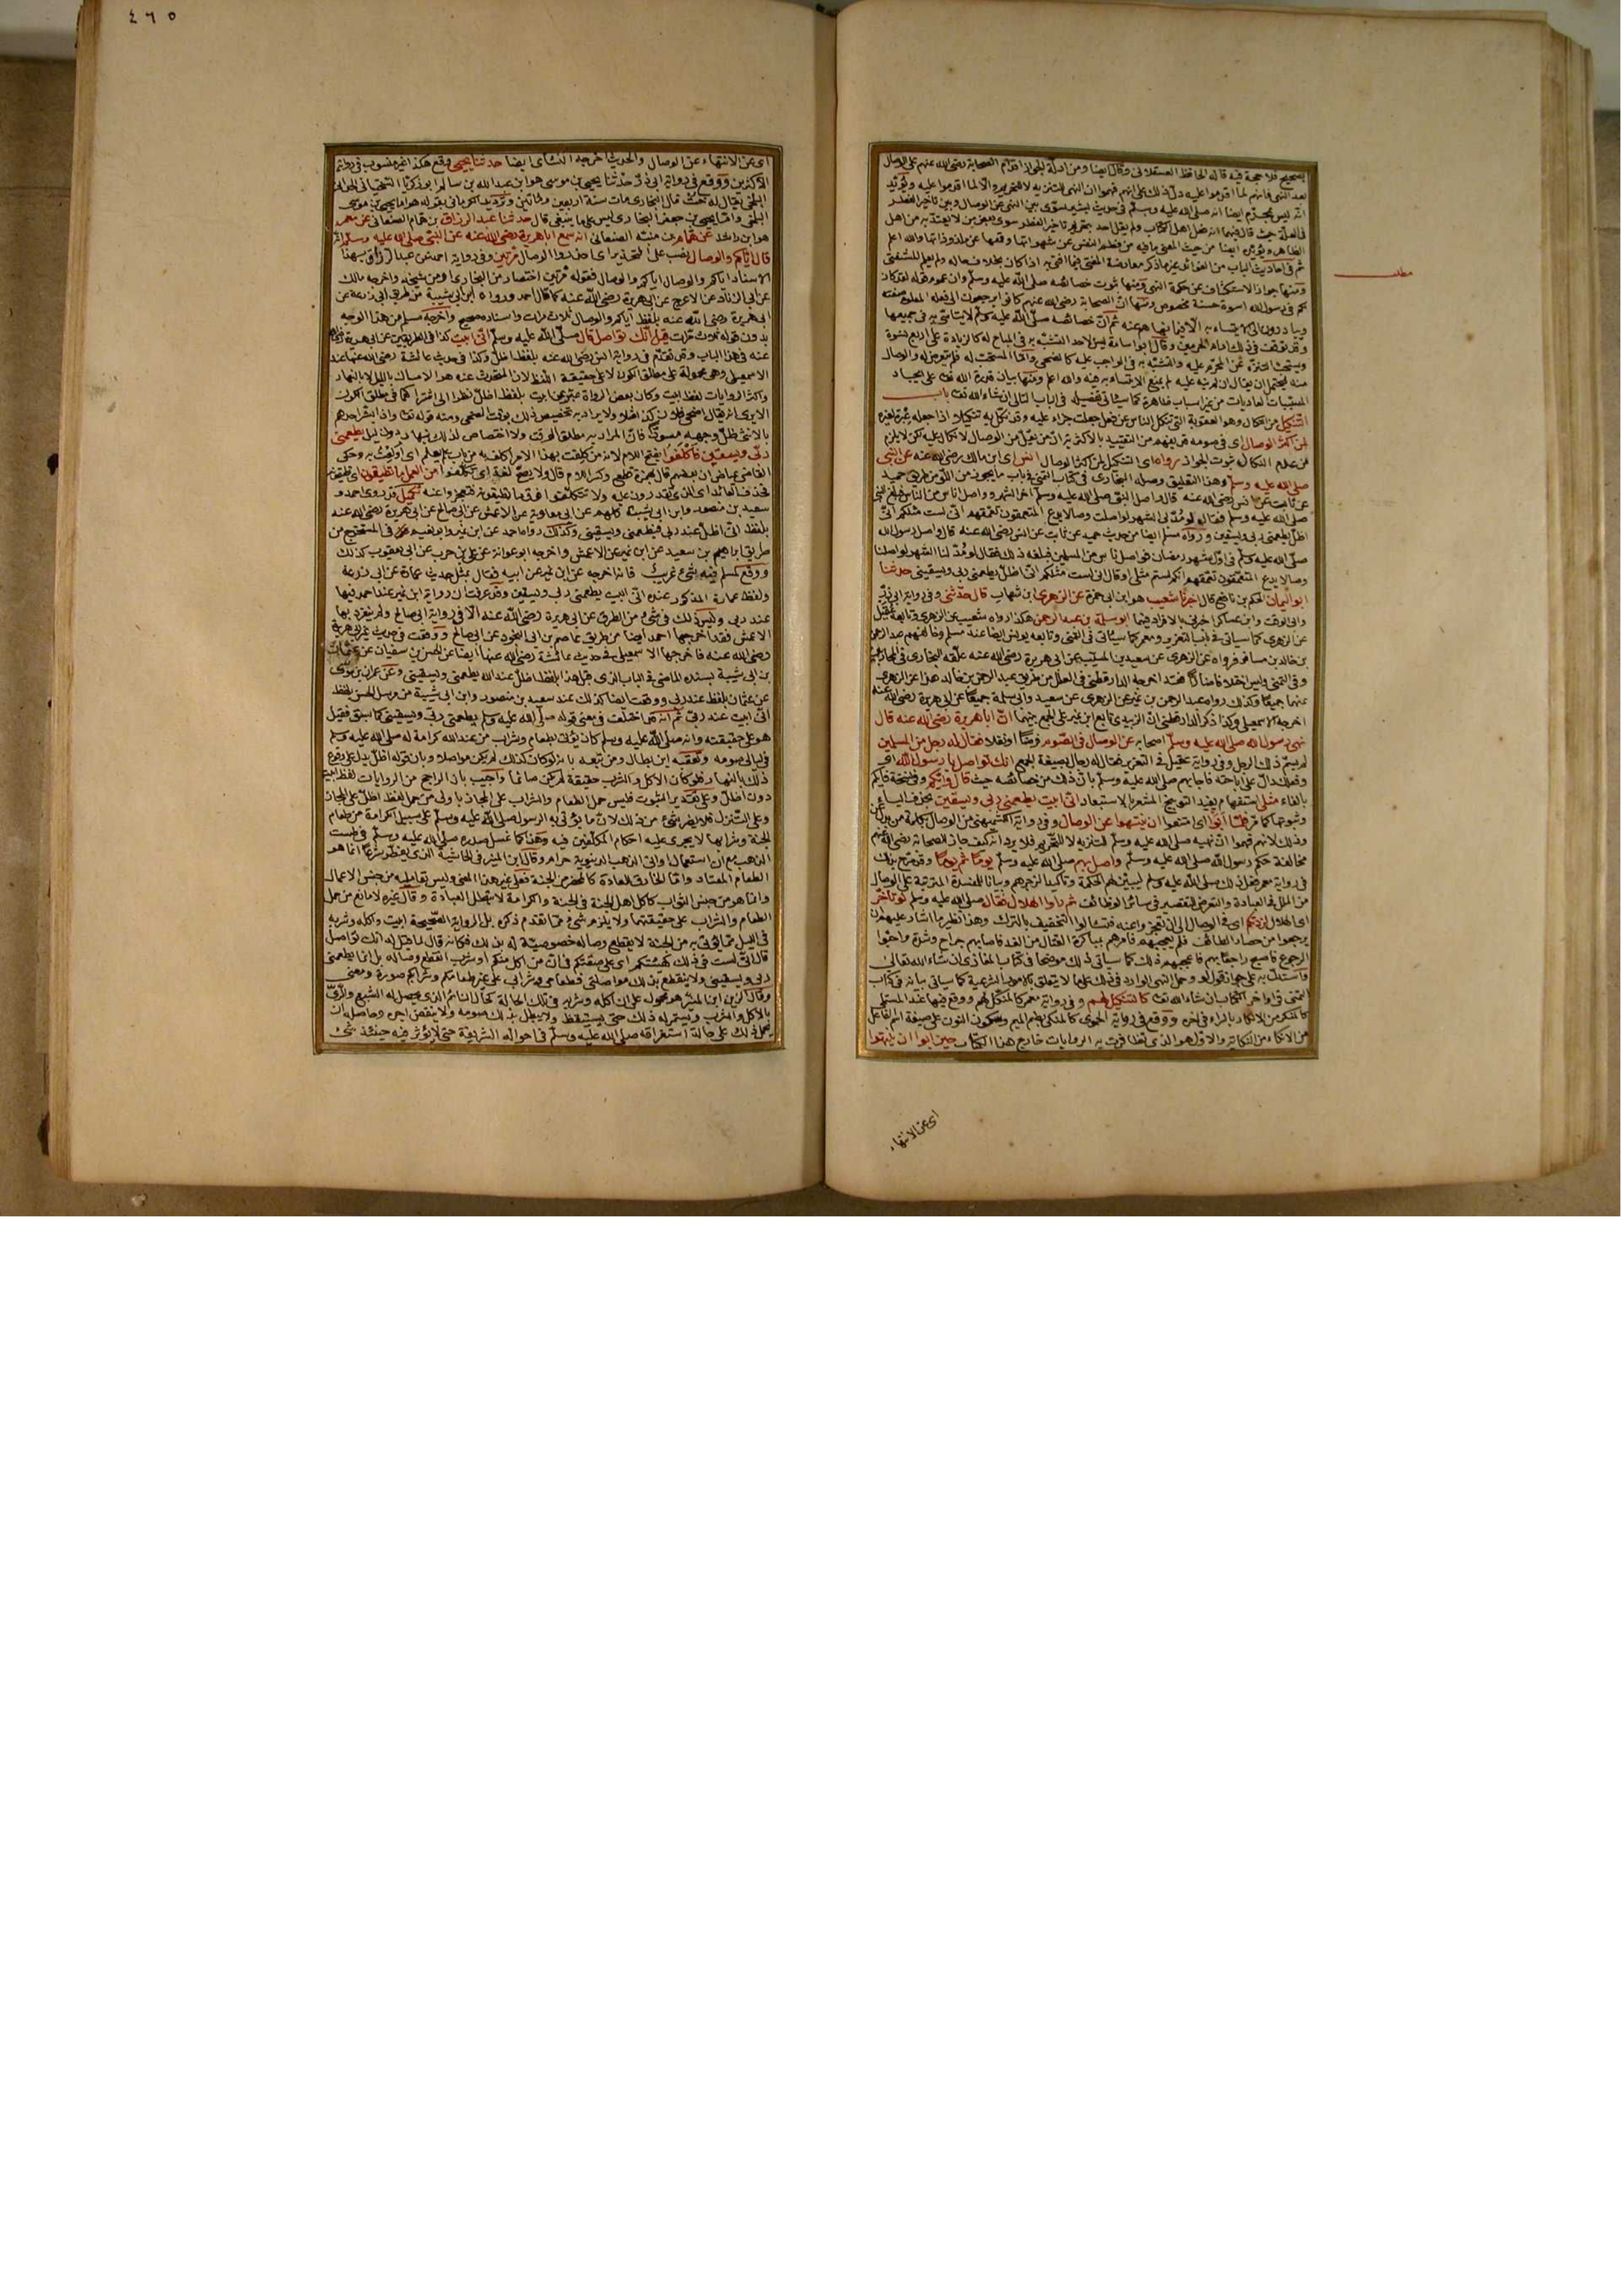 ٤٦٥
الصحيح فلا حجة فيه قاله الحافظ العسقلانى وقال ايضا ومن ادلة الجواز اقدام الصحابة رضى الله عنهم على الوصال
بعد النهى فانهم لما اقدموا عليه دل ذلك على انهم فهموا ان النهى للتنزيه لا للتحريم والا لما اقدموا عليه ويؤيد
انه ليس بمحرم ايضا انه صلى الله عليه وسلم فى حديث بشير سوى بين النهى عن الوصال وبين تاخير الفطر
فى العلة حيث قال فيهما انه فعل اهل الكتاب ولم يقل احد بتحريم تاخير الفطر سوى بعض من لا يعتد به من اهل
الظاهر ويؤيده ايضا من حيث المعنى ما فيه من فطم النفس عن شهواتها وقمعها عن ملذوذاتها والله اعلم
ثم فى احاديث الباب من الفوائد غير ما ذكر معارضة المفتى فيما افتى به اذا كان بخلاف حاله ولم يعلم المستفتى
مطلب
ومنها جواز الاستكشاف عن حكمة النهى ومنها ثبوت خصائصه صلى الله عليه وسلم وان عموم قوله لقد كان
لكم فى رسول الله اسوة حسنة مخصوص ومنها ان الصحابة رضى الله عنهم كانوا يرجعون الى فعله المعلوم صفته
ويبادرون الى الايتساء به الا فيما نهاهم عنه ثم ان خصائصه صلى الله عليه وسلم لا يتاسى به فى جميعها
وقد توقف فى ذلك امام الحرمين وقال ابو شامة ليس لاحد التشبه به فى المباح له كالزيادة على اربع نسوة
ويستحب التنزه عن المحرم عليه والتشبه به فى الواجب عليه كالضحى واما المستحب له فلم يتعرض له والوصال
منه فيحتمل ان يقال ان لم ينه عليه لم يمنع الايتساء به فيه والله اعلم ومنها بيان قدرة الله تعالى على ايجاد
المسببات العاديات من غير اسباب ظاهرة كما سيأتى تفصيله فى الباب التالى ان شاء الله تعالى باب
التنكيل من النكال وهو العقوبة التى تنكل الناس عن فعل جعلت جزاء عليه وقد نكل به تنكيلا اذا جعله عبرة لغيره
لمن اكثر الوصال اى فى صومه قد يفهم من التقييد بالاكثر ان من يقلل من الوصال لا نكال عليه لكن لا يلزم
من عدم النكال ثبوت الجواز رواه اى التنكيل لمن اكثر الوصال انس اى ابن مالك رضى الله عنه عن النبى
صلى الله عليه وسلم وهذا التعليق وصله البخارى فى كتاب التمنى فى باب ما يجوز من اللو من طريق حميد
عن ثابت عن انس رضى الله عنه قال واصل النبى صلى الله عليه وسلم آخر الشهر وواصل اناس من الناس فبلغ النبى
صلى الله عليه وسلم فقال لو مد بى الشهر لواصلت وصالا يدع المتعمقون تعمقهم انى لست مثلكم انى
اظل يطعمنى ربى ويسقينى ورواه مسلم ايضا من حديث حميد عن ثابت عن انس رضى الله عنه قال واصل رسول الله
صلى الله عليه وسلم فى اول شهر رمضان فواصل ناس من المسلمين فبلغه ذلك فقال لو مد لنا الشهر لواصلنا
وصالا يدع المتعمقون تعمقهم انكم لستم مثلى او قال انى لست مثلكم انى اظل يطعمنى ربى ويسقينى حدثنا
ابو اليمان الحكم بن نافع قال اخبرنا شعيب هو ابن ابى حمزة عن الزهرى ابن شهاب قال حدثنى وفى رواية ابى ذر
وابى الوقت وابن عساكر اخبرنى بالافراد فيهما ابو سلمة بن عبد الرحمن هكذا رواه شعيب عن الزهرى وتابعه عقيل
عن الزهرى كما سيأتى فى باب التعزير ومعمر كما سيأتى فى التمنى وتابعه يونس ايضا عند مسلم وخالفهم عبد الرحمن
بن خالد بن مسافر فرواه عن الزهرى عن سعيد بن المسيب عن ابى هريرة رضى الله عنه علقه البخارى فى المحاربين
وفى التمنى وليس اختلافا ضارا فقد اخرجه الدارقطنى فى العلل من طريق عبد الرحمن بن خالد هذا عن الزهرى
عنهما جميعا وكذلك رواه عبد الرحمن بن نمير عن الزهرى عن سعيد وابى سلمة جميعا عن ابى هريرة رضى الله عنه
اخرجه الاسمعيلى وكذا ذكر الدارقطنى ان الزبيدى تابع ابن نمير على الجمع بينهما ان ابا هريرة رضى الله عنه قال
نهى رسول الله صلى الله عليه وسلم اصحابه عن الوصال فى الصوم فرضا او نفلا فقال له رجل من المسلمين
لم يسم ذلك الرجل وفى رواية عقيل فى التعزير فقال له رجال بصيغة الجمع انك تواصل يا رسول الله اى
وفعلك دال على اباحته فاجابهم صلى الله عليه وسلم بان ذلك من خصائصه حيث قال وايكم وفى نسخة فايكم
بالفاء مثلى استفهام يفيد التوبيخ المشعر بالاستبعاد انى ابيت يطعمنى ربى ويسقين بحذف الياء
وثبوتها كما مر فلما ابوا اى امتنعوا ان ينتهوا عن الوصال وفى رواية الكشميهنى من الوصال بكلمة من بدل عن
وذلك لانهم فهموا ان نهيه صلى الله عليه وسلم للتنزيه لا للتحريم فلا يرد انه كيف جاز للصحابة رضى الله عنهم
مخالفة حكم رسول الله صلى الله عليه وسلم واصل بهم صلى الله عليه وسلم يوما ثم يوما وقد صرح بذلك
فى رواية معمر فعل ذلك صلى الله عليه وسلم ليبين لهم الحكمة وتاكيدا لزجرهم وبيانا للمفسدة المترتبة على الوصال
من الملل فى العبادة والتعرض للتقصير فى سائر الوظائف ثم راوا الهلال فقال صلى الله عليه وسلم لو تاخر
اى الهلال لزدتكم اى فى الوصال الى ان تعجزوا عنه فتسالوا التخفيف بالترك وهذا نظير ما اشار عليهم ان
يرجعوا من حصار الطائف فلم يعجبهم فامرهم بمباكرة القتال من الغد فاصابهم جراح وشدة واحبوا
الرجوع فاصبح راجعا بهم فاعجبهم ذلك كما سياتى ذلك موضحا فى كتاب المغازى ان شاء الله تعالى
واستدل به على جواز قول لو وحمل النهى الوارد فى ذلك على ما لا يتعلق بالامور الشرعية كما سياتى بيانه فى كتاب
التمنى فى اواخر الكتاب ان شاء الله تعالى كالتنكيل لهم وفى رواية معمر كالمنكل لهم ووقع فيها عند المستملى
كالمنكر من الانكار بالراء فى آخره ووقع فى رواية الحموى كالمنكى بضم الميم وسكون النون على صيغة اسم الفاعل
من الانكاء من النكاية والاول هو الذى تظافرت به الروايات خارج هذا الكتاب حين ابوا ان ينتهوا
اى عن الانتهاء
اى عن الانتهاء عن الوصال والحديث اخرجه النسائى ايضا حدثنا يحيى وقع هكذا غير منسوب فى رواية
الاكثرين ووقع فى رواية ابى ذر حدثنا يحيى بن موسى هو ابن عبد الله بن سالم ابو زكريا السختيانى الحدانى
البلخى يقال له خت قال البخارى مات سنة اربعين ومائتين وترديد الكرمانى بقوله هو اما يحيى بن موسى
البلخى واما يحيى بن جعفر البخارى ليس على ما ينبغى قال حدثنا عبد الرزاق بن همام الصنعانى عن معمر
هو ابن راشد عن همام بن منبه الصنعانى انه سمع ابا هريرة رضى الله عنه عن النبى صلى الله عليه وسلم انه
قال اياكم والوصال نصب على التحذير اى احذروا الوصال مرتين وفى رواية احمد عن عبد الرزاق بهذا
الاسناد اياكم والوصال اياكم والوصال فقوله مرتين اختصار من البخارى او من شيخه واخرجه مالك
عن ابى الزناد عن الاعرج عن ابى هريرة رضى الله عنه كما قال احمد ورواه ابن ابى شيبة من طريق ابى زرعة عن
ابى هريرة رضى الله عنه بلفظ اياكم والوصال ثلاث مرات واسناده صحيح واخرجه مسلم من هذا الوجه
بدون قوله ثلاث مرات قيل انك تواصل قال صلى الله عليه وسلم انى ابيت كذا فى الطريقين عن ابى هريرة رضى الله
عنه فى هذا الباب وقد تقدم فى رواية انس رضى الله عنه بلفظ اظل وكذا فى حديث عائشة رضى الله عنها عند
الاسمعيلى وهى محمولة على مطلق الكون لا على حقيقة اللفظ لان المتحدث عنه هو الامساك بالليل لا بالنهار
واكثر الروايات لفظ ابيت وكان بعض الرواة عبر عن ابيت بلفظ اظل نظرا الى اشتراكهما فى مطلق الكون
الا يرى انه يقال اضحى فلان كذا مثلا ولا يراد به تخصيص ذلك بوقت الضحى ومنه قوله تعالى واذا بشر احدهم
بالانثى ظل وجهه مسودا فان المراد به مطلق الوقت ولا اختصاص لذلك بنهار دون ليل يطعمنى
ربى ويسقين فاكلفوا بفتح اللام لانه من كلفت بهذا الامر اكلف به من باب علم يعلم اى اولعت به وحكى
القاضى عياض ان بعضهم قال بهمزة قطع وكسر اللام قال ولا يصح لغة اى تكلفوا من العمل ما تطيقون اى تطيقونه
فحذف العائد اى الذى تقدرون عليه ولا تتكلفوا فوق ما تطيقونه فتعجزوا عنه تكميل قد روى احمد و
سعيد بن منصور وابن ابى شيبة كلهم عن ابى معاوية عن الاعمش عن ابى صالح عن ابى هريرة رضى الله عنه
بلفظ انى اظل عند ربى فيطعمنى ويسقينى وكذلك رواه احمد عن ابن نمير وابو نعيم فى المستخرج من
طريق ابراهيم بن سعيد عن ابن نمير عن الاعمش واخرجه ابو عوانة عن على بن حرب عن ابى معاوية كذلك
ووقع لمسلم فيه شىء غريب فانه اخرجه عن ابن نمير عن ابيه فقال بمثل حديث عمارة عن ابى زرعة
ولفظ عمارة المذكور عنده انى ابيت يطعمنى ربى ويسقين وقد عرفت ان رواية ابن نمير عند احمد فيها
عند ربى وليس ذلك فى شىء من الطرق عن ابى هريرة رضى الله عنه الا فى رواية ابى صالح ولم ينفرد بها
الاعمش فقد اخرجها احمد ايضا من طريق عاصم بن ابى النجود عن ابى صالح ووقعت فى حديث غير ابى هريرة
رضى الله عنه فاخرجها الاسمعيلى فى حديث عائشة رضى الله عنها ايضا عن الحسن بن سفيان عن عثمان
بن ابى شيبة بسنده الماضى فى الباب الذى قبل هذا بلفظ اظل عند الله يطعمنى ويسقينى وعن عمران بن موسى
عن عثمان بلفظ عند ربى ووقعت ايضا كذلك عند سعيد بن منصور وابن ابى شيبة من مرسل الحسن بلفظ
انى ابيت عند ربى ثم انه قد اختلف فى معنى قوله صلى الله عليه وسلم يطعمنى ربى ويسقينى كما سبق فقيل
هو على حقيقته وانه صلى الله عليه وسلم كان يؤتى بطعام وشراب من عند الله كرامة له صلى الله عليه وسلم
فى ليالى صومه وتعقبه ابن بطال ومن تبعه بانه لو كان كذلك لم يكن مواصلا وبان قوله اظل يدل على وقوع
ذلك بالنهار فلو كان الاكل والشرب حقيقة لم يكن صائما واجيب بان الراجح من الروايات لفظ ابيت
دون اظل وعلى تقدير الثبوت فليس حمل الطعام والشراب على المجاز باولى من حمل لفظ اظل على المجاز
وعلى التنزل فلا يضر شىء من ذلك لان ما يؤتى به الرسول صلى الله عليه وسلم على سبيل الكرامة من طعام
الجنة وشرابها لا يجرى عليه احكام المكلفين فيه وهذا كما غسل صدره صلى الله عليه وسلم فى طست
الذهب مع ان استعمال اوانى الذهب الدنيوية حرام وقال ابن المنير فى الحاشية الذى يفطر شرعا انما هو
الطعام المعتاد واما الخارق للعادة كالمحضر من الجنة فعلى غير هذا المعنى وليس تعاطيه من جنس الاعمال
وانما هو من جنس الثواب كاكل اهل الجنة فى الجنة والكرامة لا تبطل العبادة وقال غيره لا مانع من حمل
الطعام والشراب على حقيقتهما ولا يلزم شىء مما تقدم ذكره بل الرواية الصحيحة ابيت واكله وشربه
فى الليل مما يؤتى به من الجنة لا يقطع وصاله خصوصية له بذلك فكانه قال لما قيل له انك تواصل
قال انى لست فى ذلك كهيئتكم اى على صفتكم فى ان من اكل منكم او شرب انقطع وصاله بل انما يطعمنى
ربى ويسقينى ولا ينقطع بذلك مواصلتى فطعامى وشرابى على غير طعامكم وشرابكم صورة ومعنى
وقال الزين ابن المنير هو محمول على ان اكله وشربه فى تلك الحالة كحال النائم الذى يحصل له الشبع والرى
بالاكل والشرب ويستمر له ذلك حتى يستيقظ ولا يبطل بذلك صومه ولا ينقص اجره وحاصله ان
يحمل ذلك على حالة استغراقه صلى الله عليه وسلم فى احواله الشريفة حتى لا يؤثر فيه حينئذ شىء